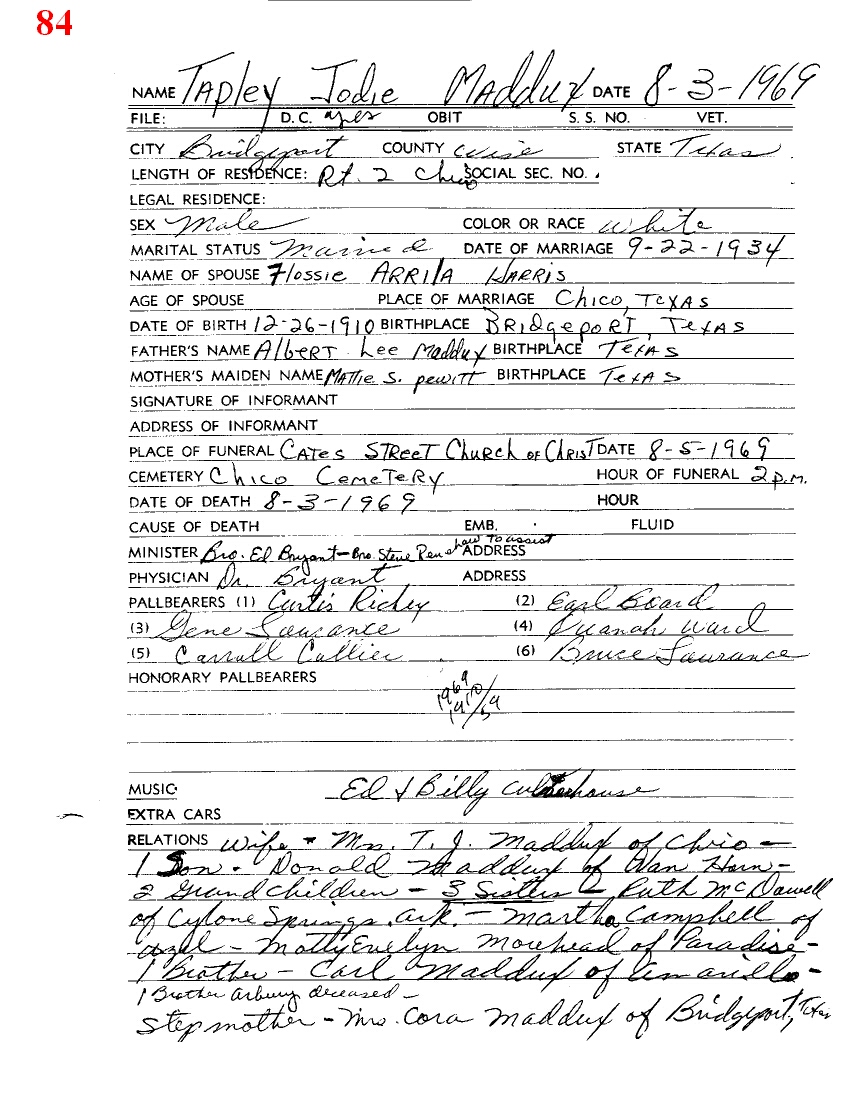 84
NAME TAPley Jodie MADDUX DATE 8-3-1969
FILE: D.C. OBIT S. S. NO. VET.
CITY Bridgeport COUNTY Wise STATE Texas
LENGTH OF RESIDENCE: Rt. 2 Chico SOCIAL SEC. NO.
LEGAL RESIDENCE:
SEX Male COLOR OR RACE White
MARITAL STATUS Married DATE OF MARRIAGE 9-22-1934
NAME OF SPOUSE Flossie ARRILA HARRIS
AGE OF SPOUSE PLACE OF MARRIAGE Chico, TEXAS
DATE OF BIRTH 12-26-1910 BIRTHPLACE BRIdgepORT, TexAS
FATHER'S NAME AlberT Lee Maddux BIRTHPLACE TexAS
MOTHER'S MAIDEN NAME MATTie S. pewitt BIRTHPLACE TexAS
SIGNATURE OF INFORMANT
ADDRESS OF INFORMANT
PLACE OF FUNERAL CATes STREET CHURCH OF CHRIST DATE 8-5-1969
CEMETERY Chico CemeTeRy HOUR OF FUNERAL 2 p.m.
DATE OF DEATH 8-3-1969 HOUR
CAUSE OF DEATH EMB. FLUID
MINISTER Bro. Ed Bryant - Bro. Steve to assist ADDRESS
PHYSICIAN Dr. Bryant ADDRESS
PALLBEARERS (1) Curtis Richey (2) Earl Board
(3) Gene Laurance (4) Quanah Ward
(5) Carroll Collier (6) Bruce Laurance
HONORARY PALLBEARERS
1969
1910/59
MUSIC Ed & Billy Culterhouse
EXTRA CARS
RELATIONS Wife - Mrs. T. J. Maddux of Chico -
1 Son - Donald Maddux of Van Horn -
2 Grandchildren - 3 Sisters - Ruth McDowell
of Cylone Springs, Ark. - Martha Campbell of
Azel - Matty Evelyn Morehead of Paradise -
1 Brother - Carl Maddux of Amarillo -
1 Brother Arbury deceased -
Stepmother - Mrs. Cora Maddux of Bridgeport, Texas